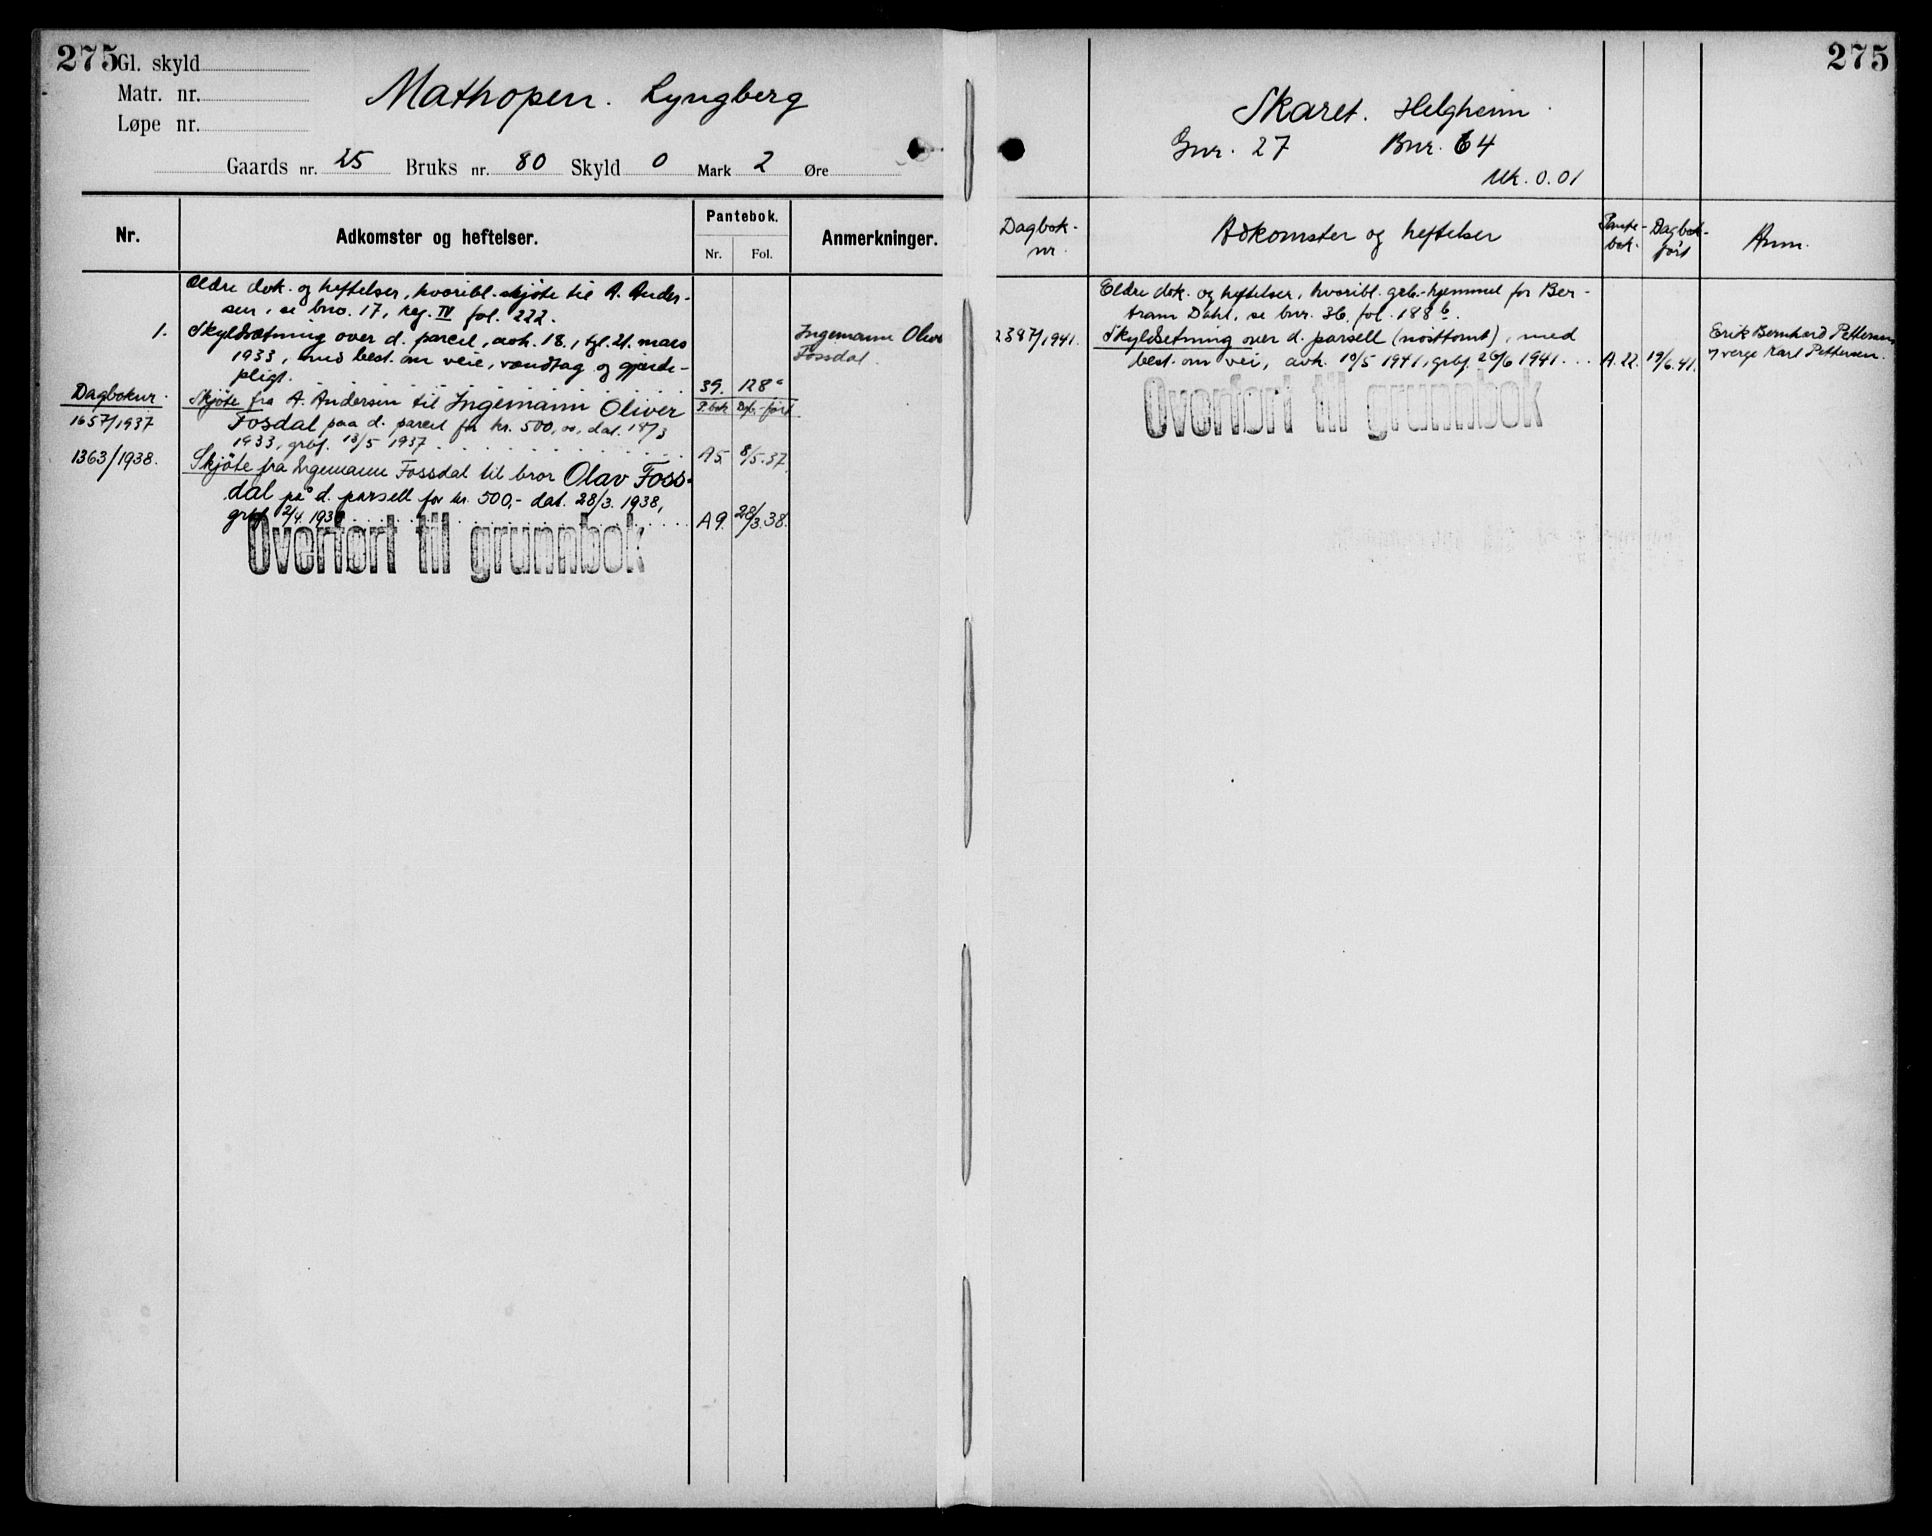 275
Gl. skyld
Matr. nr.
Løpe nr.
Mathopen. Lyngberg
Gaards nr. 25 Bruks nr. 80 Skyld 0 Mark 2 Øre
Nr.
Adkomster og heftelser.
Pantebok.
Nr. Fol.
Anmerkninger.
Ældre dok. og heftelser, hvoribl. skjøte til A. Ander-
sen, se bno. 17, reg. IV fol. 222.
1. Skyldsætning over d. parcel, avh. 18., tgl. 21. mars
1933, med best. om veie, vandtag og gjerde-
pligt. 39. 128a
Ingemann Oliver
Fossdal.
Dagboknr. P.bok Dgb.-ført
1657/1937 Skjöte fra A. Andersen til Ingemann Oliver
Fosdal paa d. parcel for kr. 500,00, dat. 18/3
1933, grbf. 13/5 1937 A5. 8/5.37.
1363/1938. Skjöte fra Ingemann Fossdal til bror Olav Foss-
dal på d. parsell for kr. 500,- dat. 28/3. 1938,
grbf. 2/4. 1938 A9. 28/3.38.
Overført til grunnbok
275
Skaret. Helgheim.
Gnr. 27 Bnr. 64
Mk. 0.01
Dagbok-
nr.
Adkomster og heftelser
Pante-
bok.
Dagbok-
ført
Anm.
Eldre dok. og heftelser, hvoribl. grb.-hjemmel for Ber-
tram Dahl, se bnr. 36, fol. 188b.
2387/1941. Skyldsetning over d. parsell (nosttomt), med
best. om vei, avh. 10/5 1941, grbf. 26/6 1941. A.22. 19/6.41.
Erik Bernhard Pettersen
v/ verge Karl Pettersen.
Overført til grunnbok